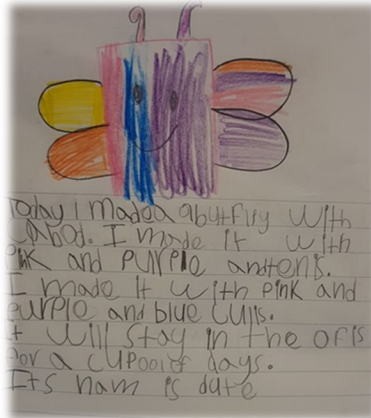 Today i madea abutfiy with
Abod. I made it with
PiNK and PURPLE andtens.
I made it with Pink and
PURPLE and blue CULLS.
it will stay in the ofis
for a CUPOOlof days.
Its nam is dute